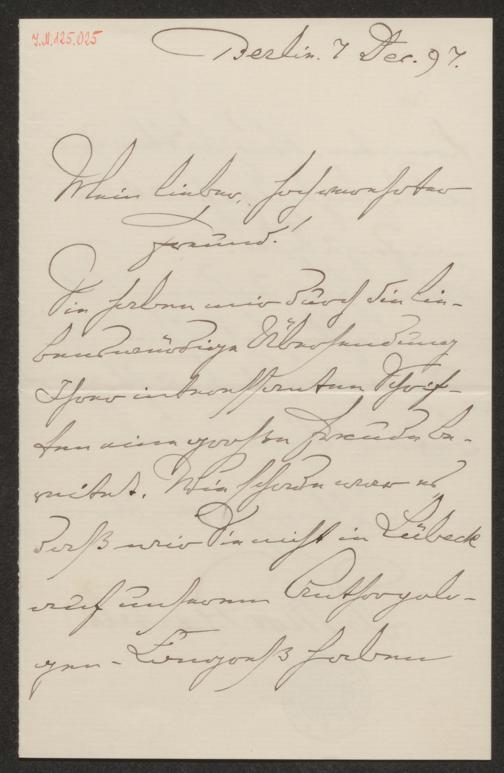 I.N.125.025
Berlin. 7 Dec. 97.
Mein lieber, hochverehrter
Freund!
Sie haben mir durch die lie-
benswürdige Übersendung
Ihrer interessanten Schrif-
ten eine große Freude be-
reitet. Wie schade war es
daß wir Sie nicht in Lübeck
auf unserem Anthropolo-
gen-Congreß haben